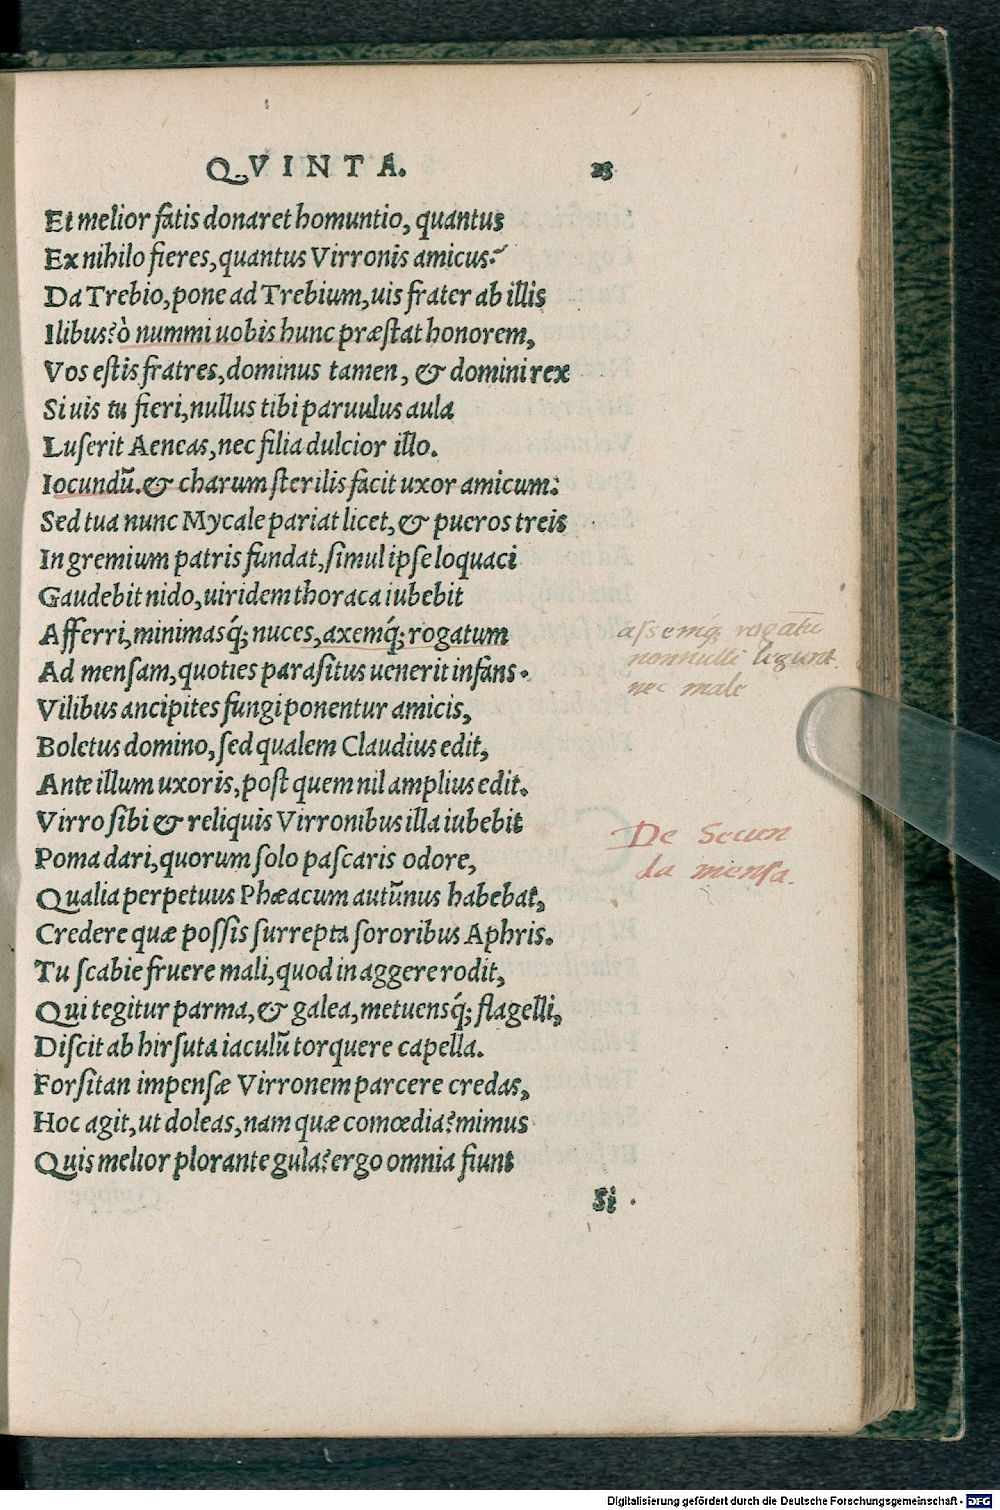 QVINTA. 25
Et melior fatis donaret homuntio, quantus
Ex nihilo fieres, quantus Virronis amicus?
Da Trebio, pone ad Trebium, uis frater ab illis
Ilibus? ò nummi uobis hunc præstat honorem,
Vos estis fratres, dominus tamen, & domini rex
Si uis tu fieri, nullus tibi paruulus aula
Luserit Aeneas, nec filia dulcior illo.
Iocundũ. & charum sterilis facit uxor amicum:
Sed tua nunc Mycale pariat licet, & pueros treis
In gremium patris fundat, simul ipse loquaci
Gaudebit nido, uiridem thoraca iubebit
Afferri, minimasq́; nuces, axemq́; rogatum
assemq; rogatũ
nonnulli legunt.
nec male
Ad mensam, quoties parasitus uenerit infans.
Vilibus ancipites fungi ponentur amicis,
Boletus domino, sed qualem Claudius edit,
Ante illum uxoris, post quem nil amplius edit.
Virro sibi & reliquis Virronibus illa iubebit
De Secun
da mensa.
Poma dari, quorum solo pascaris odore,
Qualia perpetuus Phæacum autũnus habebat,
Credere quæ possis surrepta sororibus Aphris.
Tu scabie fruere mali, quod in aggere rodit,
Qui tegitur parma, & galea, metuensq́; flagelli,
Discit ab hirsuta iaculũ torquere capella.
Forsitan impensæ Virronem parcere credas,
Hoc agit, ut doleas, nam quæ comœdia? mimus
Quis melior plorante gula? ergo omnia fiunt
Si
Digitalisierung gefördert durch die Deutsche Forschungsgemeinschaft - DFG